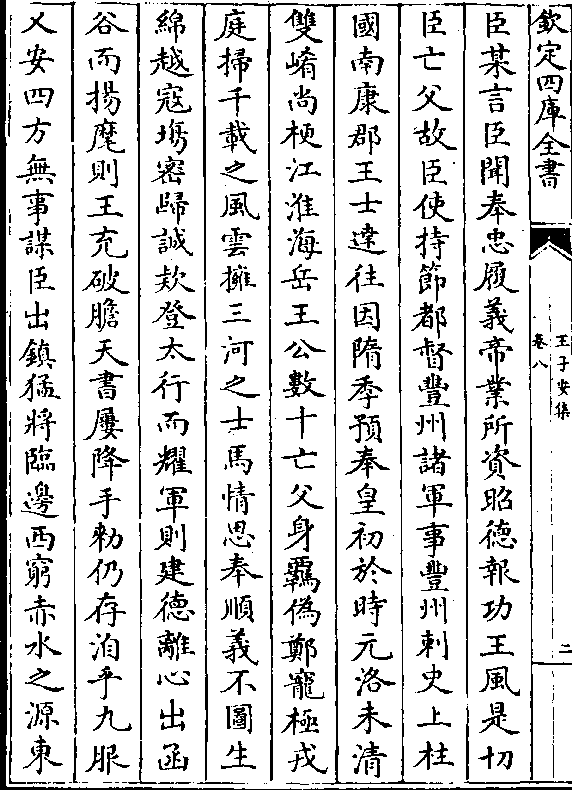 欽定四庫全書
王子安集
卷八
二
臣某言臣聞奉忠履義帝業所資昭德報功王風是切
臣亡父故臣使持節都督豐州諸軍事豐州刺史上柱
國南康郡王士達往因隋季預奉皇初於時元洛未清
雙崤尚梗江淮海岳王公數十亡父身羈偽鄭寵極戎
庭掃千載之風雲擁三河之士馬情思奉順義不圖生
綿越寇塲密歸誠欵登太行而耀軍則建德離心出函
谷而揚麾則王充破膽天書屢降手勑仍存洎乎九服
乂安四方無事謀臣出鎮猛將臨邊西窮赤水之源東